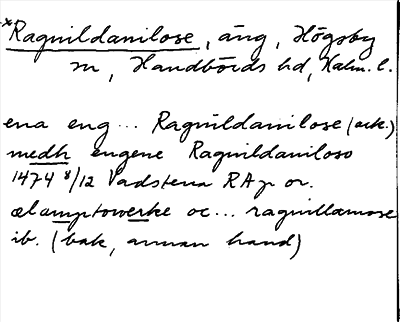 *Ragnildanilose, äng, Högsby
sn, Handbörds hd, Kalm. l.
ena eng ... Ragnildanilose (ack.)
medh engene Ragnildaniloso
1474 8/12 Vadstena RAp or.
ælamptowerke oc ... ragnillamose
ib. (bak, annan hand)